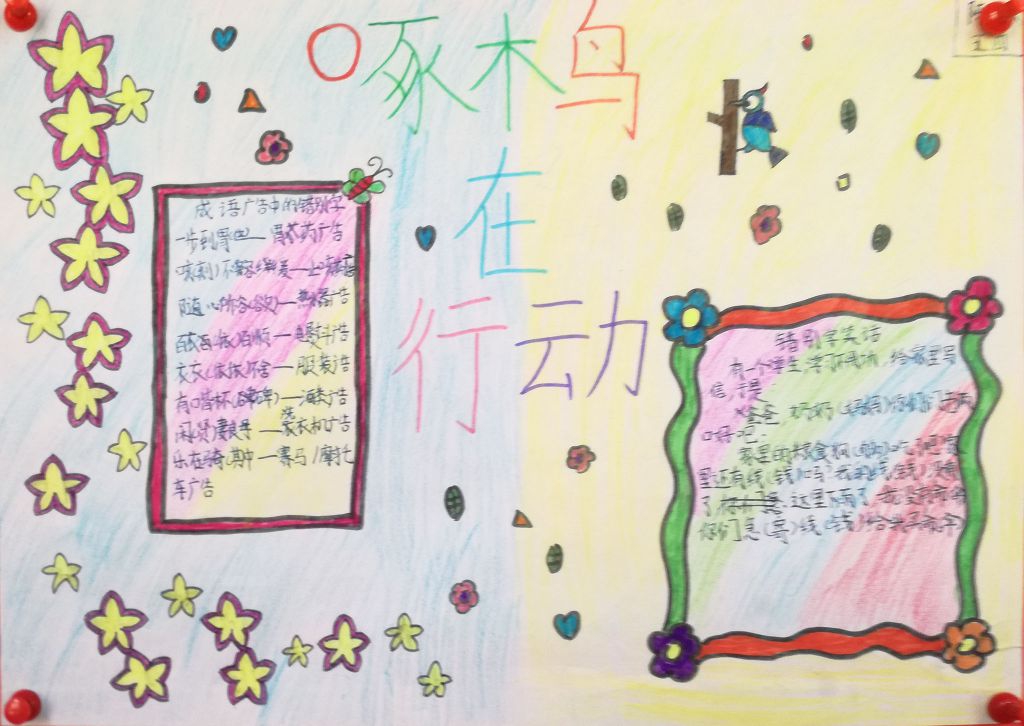 啄木鸟
在
行动
成语广告中的错别字
一步到胃(位)——胃药广告
咳(刻)不容缓——止咳
随心所浴(欲)——热水器广告
百衣百顺——电熨斗广告
衣衣(依依)不舍——服装广告
有口皆杯(碑)——酒类广告
闲(贤)妻良母——洗衣机广告
乐在骑(其)中——赛马/摩托
车广告
错别字笑话
有一个学生学习不用功,给家里写
信,于是
爸爸,奶奶
好吧.
家里的粮食狗(够)吃吧,家
里还有线(钱)吗?我的线(钱)
了,这里下雨了,我没有
你们急(寄)线(钱)给我买